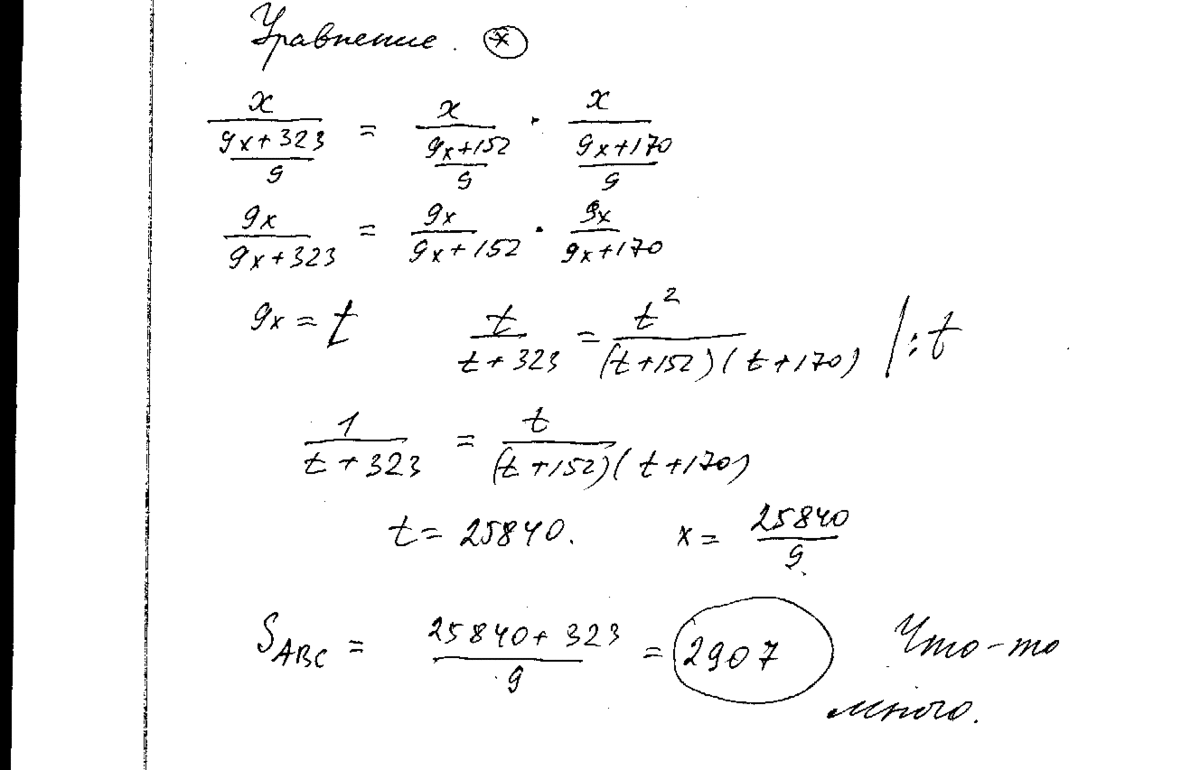 Уравнение. (*)
x/((9x+323)/9) = x/((9x+152)/9) · x/((9x+170)/9)
9x/(9x+323) = 9x/(9x+152) · 9x/(9x+170)
9x = t   t/(t+323) = t²/((t+152)(t+170)) |:t
1/(t+323) = t/((t+152)(t+170))
t = 25840.   x = 25840/9.
S_ABC = (25840+323)/9 = 2907   Что-то
много.